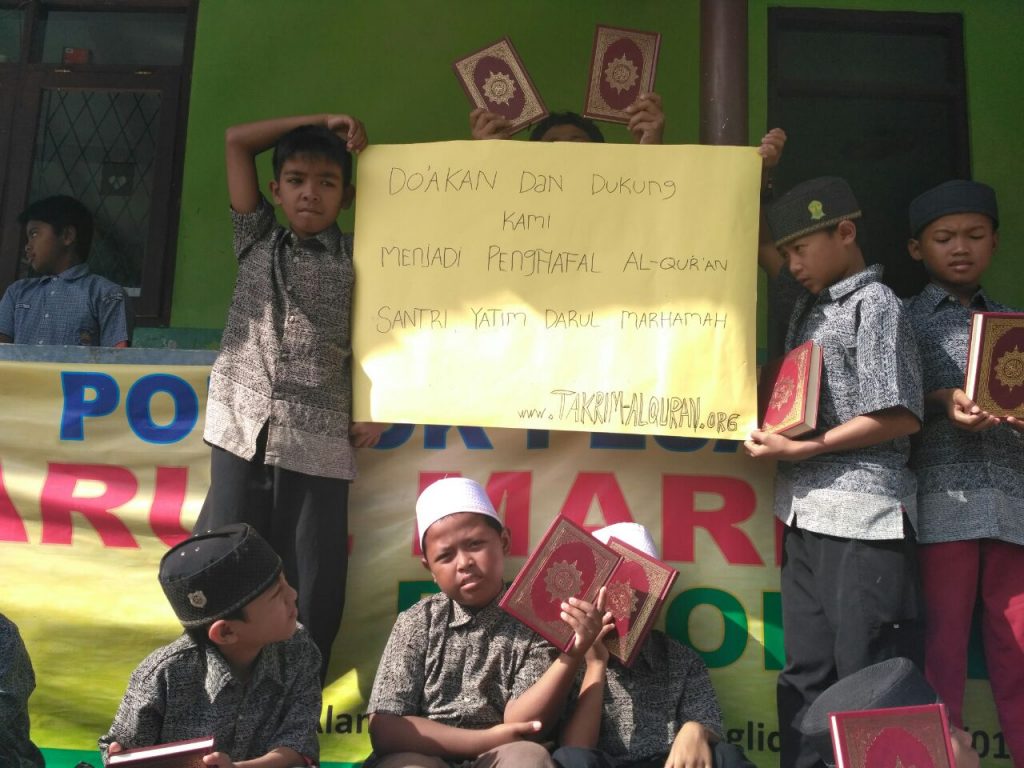 DO'AKAN DAN DUKUNG
KAMI
MENJADI PENGHAFAL AL-QUR'AN
SANTRI YATIM DARUL MARHAMAH
www.TAKRIM-ALQURAN.ORG
PO
ARUL MAR
Alam